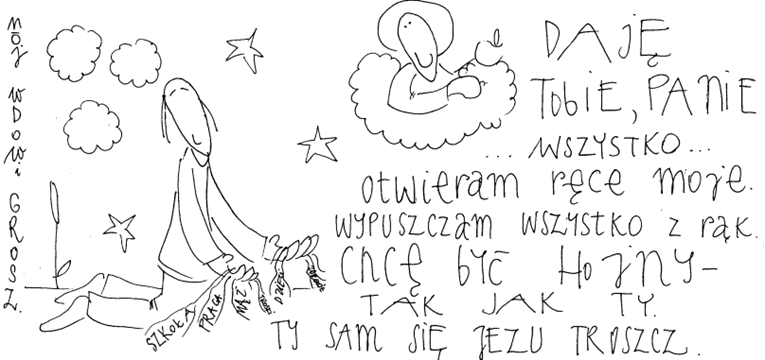 mój wdowi GROSZ.
DAJĘ
TobiE, PANiE
... WSZYSTKO...
otwieram ręce moje.
WYPUSZCZAM WSZYSTKO z rąk.
CHCĘ BYĆ HojNY-
TAK JAK TY.
TY SAM SIĘ JEZU TROSZCZ.
SZKOŁA
PRACA